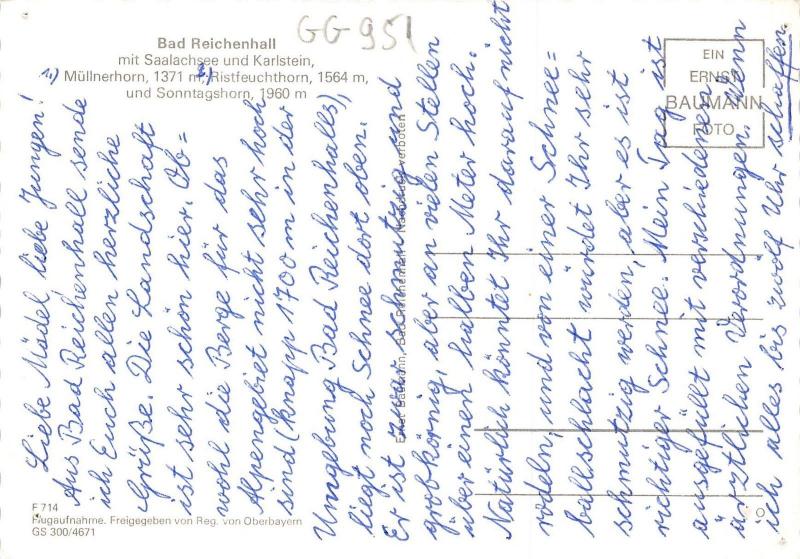 GG 951
Bad Reichenhall
mit Saalachsee und Karlstein,
Müllnerhorn, 1371 m, Ristfeuchthorn, 1564 m,
und Sonntagshorn, 1960 m
EIN
ERNST
BAUMANN
FOTO
Liebe Mädel, liebe Jungen!
Aus Bad Reichenhall sende
ich Euch allen herzliche
Grüße. Die Landschaft
ist sehr schön hier. Ob=
wohl die Berge für das
Alpengebiet nicht sehr hoch
sind (knapp 1700 m in der
Umgebung Bad Reichenhalls),
liegt noch Schnee dort oben.
Er ist zwar schmutzig und
grobkörnig, aber an vielen Stellen
über einen halben Meter hoch.
Natürlich könntet Ihr darauf nicht
rodeln, und von einer Schnee=
ballschlacht würdet Ihr sehr
schmutzig werden, aber es ist
richtiger Schnee. Mein Tag ist
ausgefüllt mit verschiedenen
ärztlichen Verordnungen. Wenn
ich alles bis zwölf Uhr schaffen
Ernst Baumann, Bad Reichenhall Nachdruck verboten
F 714
Flugaufnahme. Freigegeben von Reg. von Oberbayern
GS 300/4671